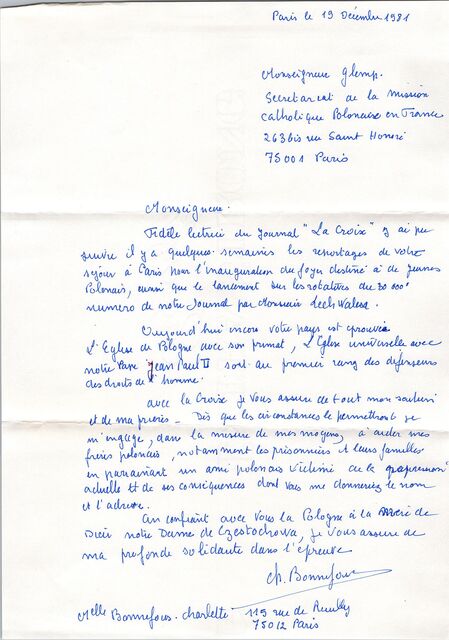 Paris le 19 Décembre 1981
Monseigneur Glemp.
Secretariat de la mission
Catholique Polonaise en France
263bis rue Saint Honoré
75001 Paris
Monseigneur.
Fidèle lectrice du Journal "La Croix" j'ai pu
suivre il y a quelques semaines les reportages de votre
séjour à Paris pour l'inauguration du foyer destiné à de jeunes
Polonais, ainsi que le lancement sur les rotatives du 30 000è
numero de notre Journal par Monsieur Lech Walesa.
Aujourd'hui encore votre pays est éprouvé
L'Eglise de Pologne avec son primat, L'Eglise universelle avec
notre Pape Jean Paul II sont au premier rang des défenseurs
des droits de l'homme.
avec la Croix je vous assure de tout mon soutien
et de ma prière - Dès que les circonstances le permettront je
m'engage, dans la mesure de mes moyens, à aider mes
frères polonais, notamment les prisonniers et leurs familles
en parrainant un ami polonais victime de la repression
actuelle et de ses conséquences dont vous me donneriez le nom
et l'adresse.
En confiant avec vous la Pologne à la Mère de
Dieu notre Dame de Czestochowa, je vous assure de
ma profonde solidarité dans l'épreuve
Ch. Bonnefous
Melle Bonnefous - Charlotte 119 rue de Reuilly
75012 Paris